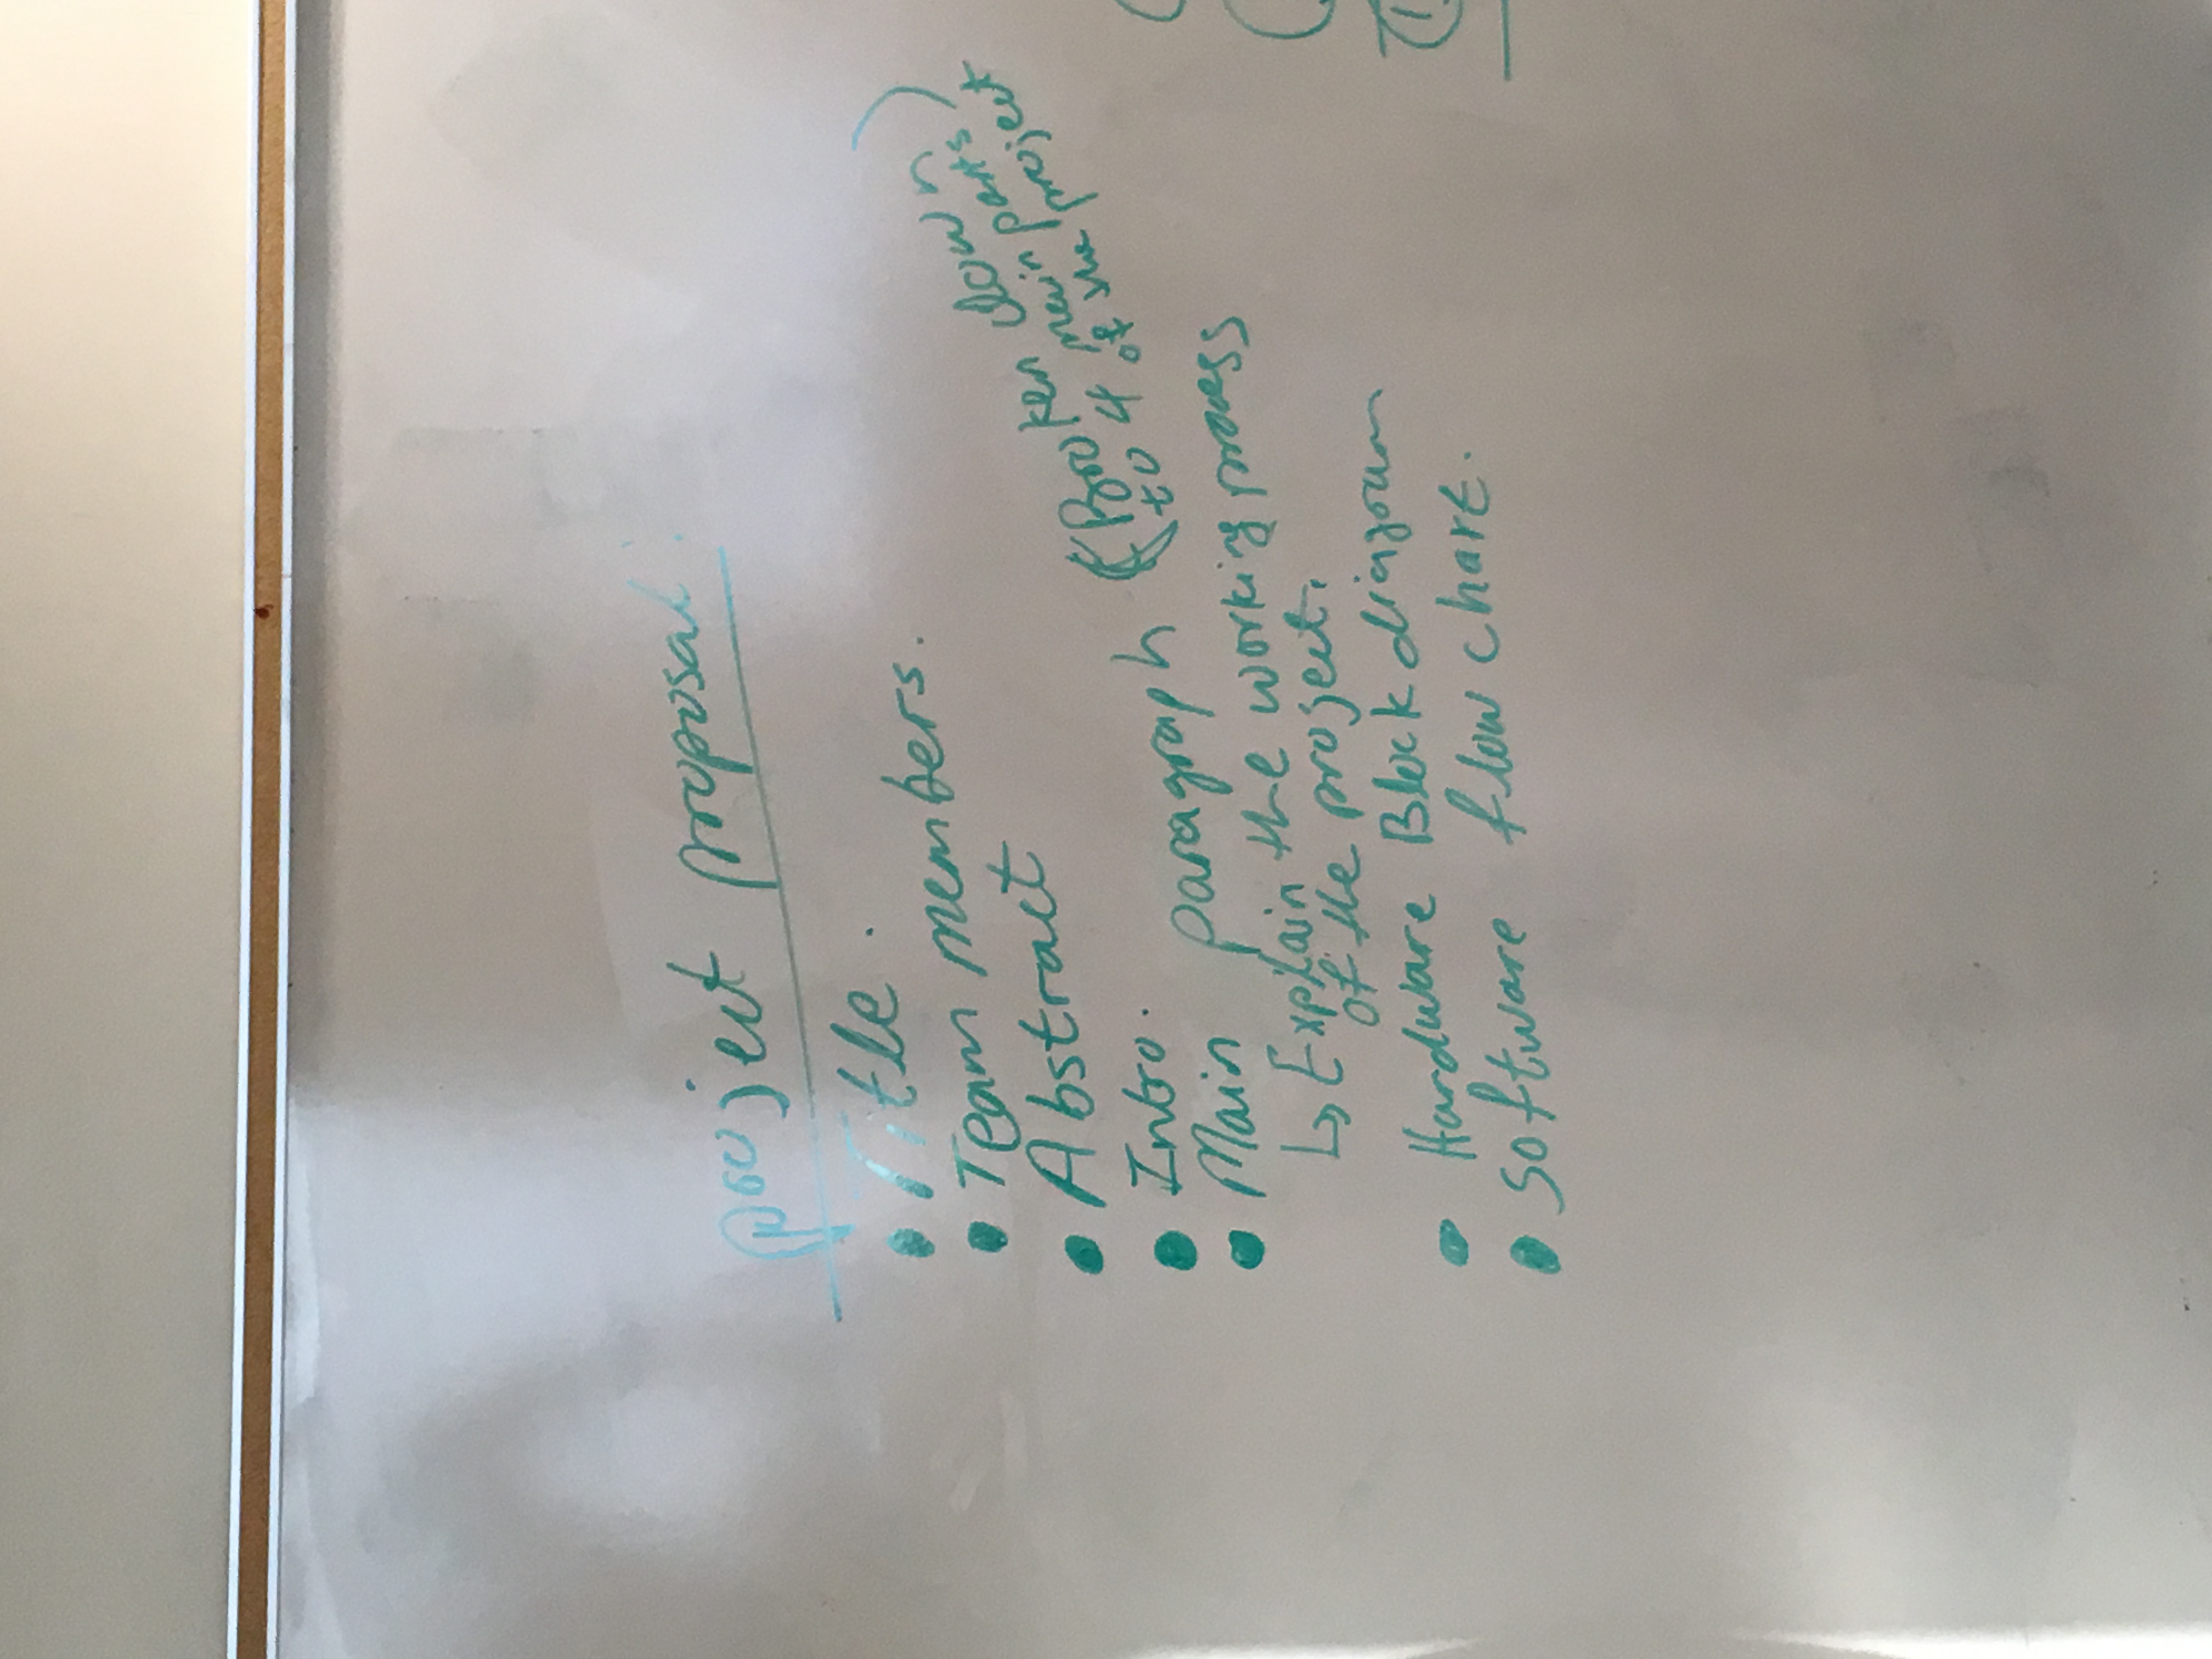 project proposal:
• Title.
• Team members.
• Abstract
• Intro.
• Main paragraph (Broken down
to 4 main parts)
of the project
↳ Explain the working process
of the project.
• Hardware Block diagram
• Software flow chart.